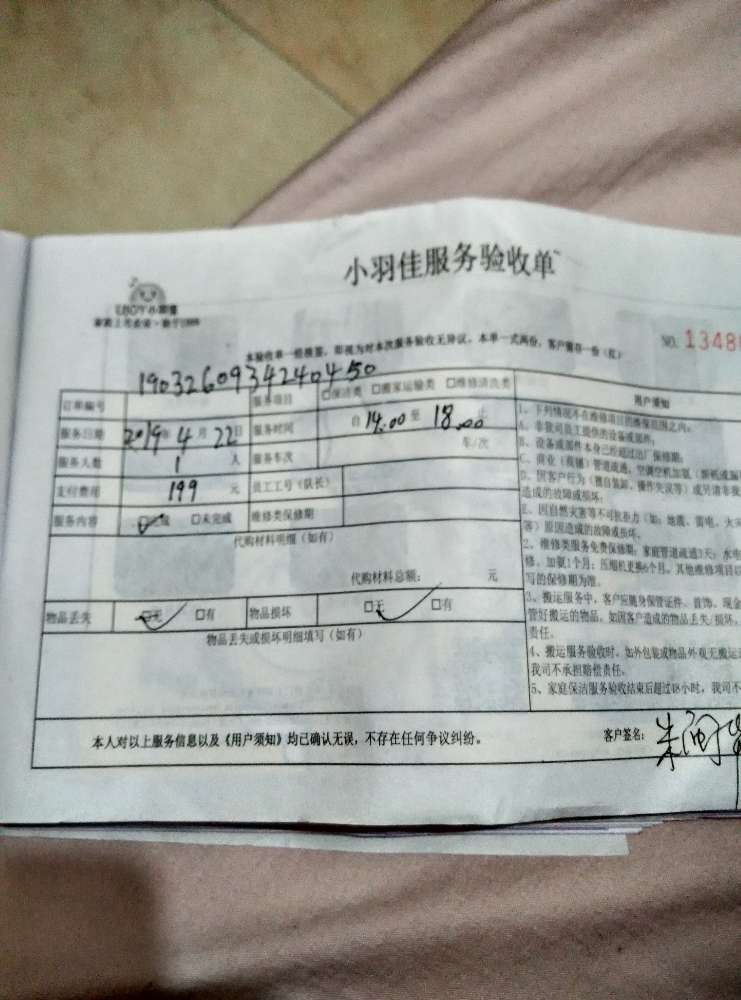 小羽佳服务验收单
NO. 1348
本验收单一经接签，即视为对本次服务验收无异议。本单一式两份，客户留存一份（红）
订单编号 1903260934240450 服务项目 □保洁类 □搬家运输类 □维修清洗类
服务日期 2019年4月22日 服务时间 自 14.00 至 18.00 止
服务人数 1 人 服务车次 车/次
支付费用 199 元 员工工号（队长）
服务内容 □完成 □未完成 维修类保修期
代购材料明细（如有）
代购材料总额： 元
物品丢失 □无 □有 物品损坏 □无 □有
物品丢失或损坏明细填写（如有）
用户须知
1、下列情况不在维修项目的维保范围之内：
A、非我司员工提供的设备或部件；
B、设备或部件本身已经超过出厂保修期；
D、因客户行为（擅自装卸、操作失误等）或另请非我
造成的故障或损坏；
E、因自然灾害等不可抗拒力（如：地震、雷电、火灾
等）原因造成的故障或损坏。
2、维修类服务免费保修期：家庭管道疏通3天；水电
修、加氨1个月；压缩机更换6个月。其他维修项目以
写的保修期为准。
3、搬运服务中，客户应随身保管证件、首饰、现金
管好搬运的物品。如因客户造成的物品丢失/损坏，
责任。
4、搬运服务验收时，如外包装或物品外观无搬运
我司不承担赔偿责任。
5、家庭保洁服务验收结束后超过48小时，我司不
本人对以上服务信息以及《用户须知》均已确认无误，不存在任何争议纠纷。
客户签名：